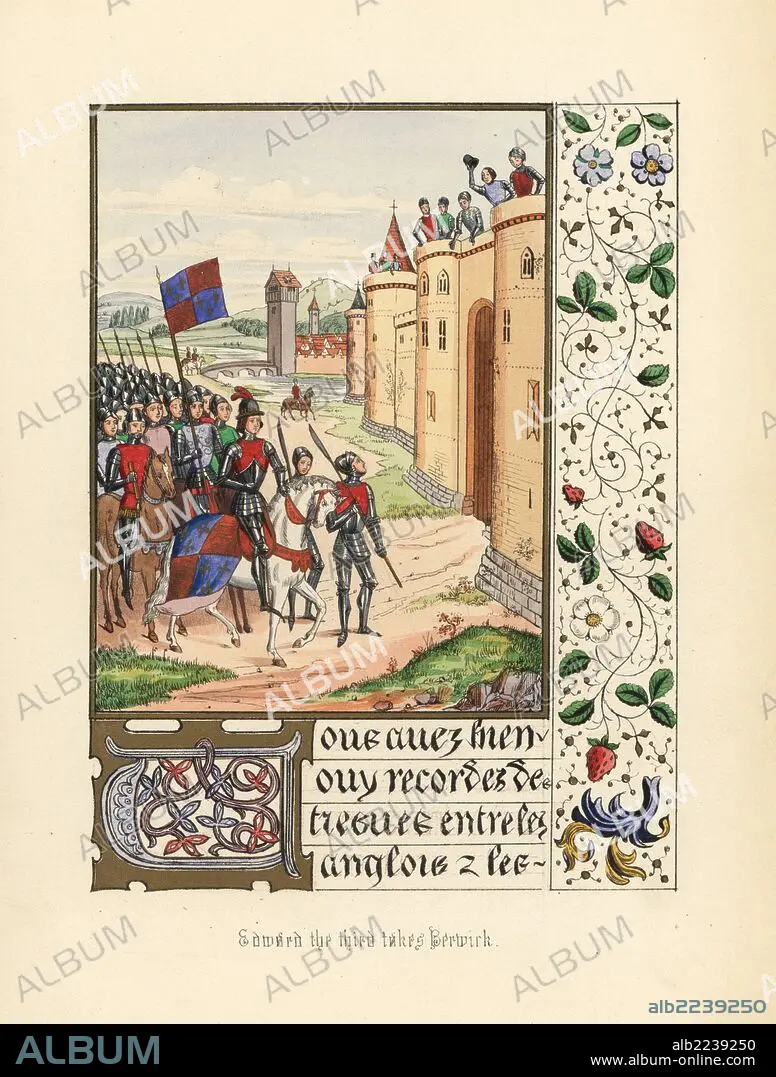 ous avez bien
ouy recordez des
tresves entre lez
anglois z les~
Edward the third takes Berwick.
ALBUM
alb2239250
ALBUM
alb2239250
www.album-online.com